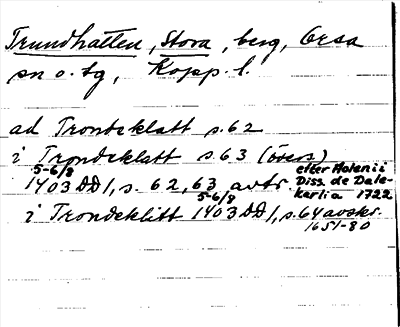 Trundhatten, Stora, berg, Orsa
sn o. tg, Kopp. l.
ad Trondeklatt s. 62
i Trondeklatt s. 63 (övers)
5-6/8 1403 DD 1, s. 62, 63 avtr. efter Holenii Diss. de Dalekarlia 1722
i Trondeklitt 5-6/8 1403 DD 1, s. 64 avskr. 1651-80